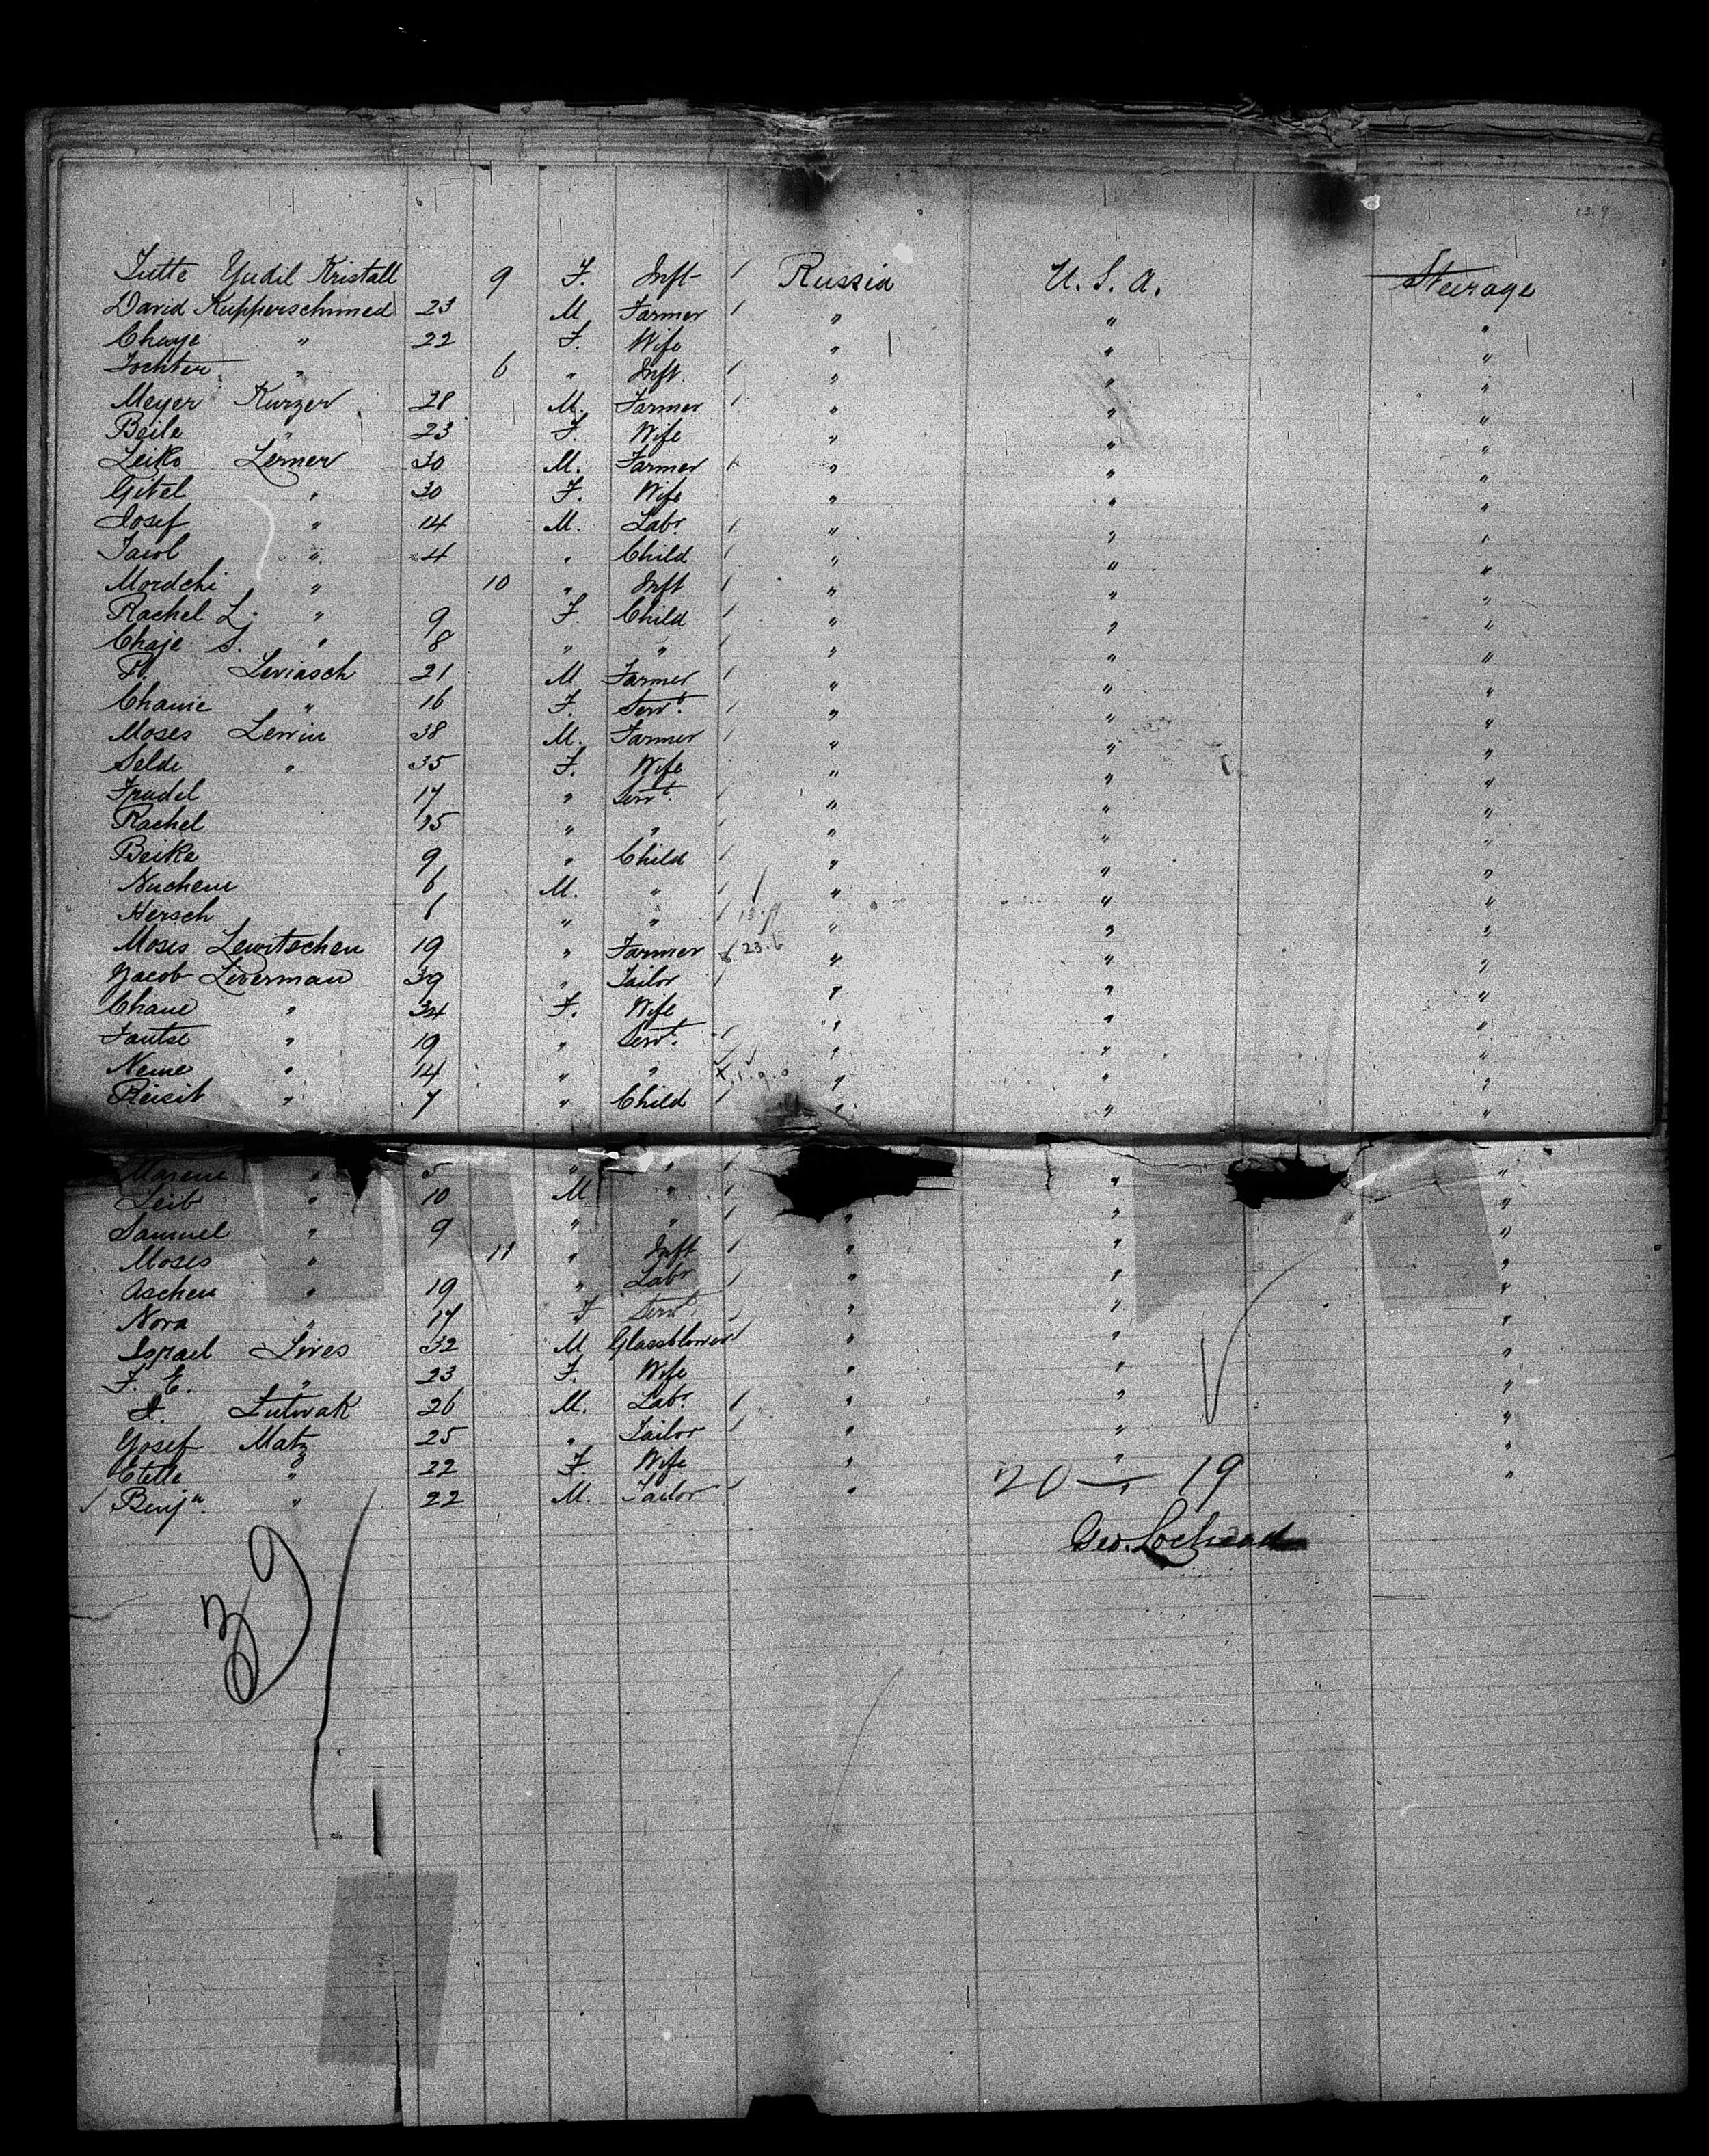 13.9
Jutte Yudil Kristall 9 F. Inft / Russia U.S.A. Steerage
David Kupperschmied 23 M Farmer / " " "
Chaje " 22 F. Wife " " "
Tochter " 6 " Inft. / " " "
Meyer Kurzer 28 M. Farmer / " " "
Beile " 23 F. Wife " " "
Leiko Lerner 30 M. Farmer / " " "
Gitel " 30 F. Wife " " "
Josef " 14 M. Labr. / " " "
Jacob " 4 " Child / " " "
Mordchi " 10 " Inft / " " "
Rachel L. " 9 F. Child / " " "
Chaje S. " 8 " " / " " "
Leviasch 21 M Farmer / " " "
Channe " 16 F. Servt. / " " "
Moses Lewin 38 M. Farmer / " " "
Selde " 35 F. Wife " " "
Fradel 17 " Servt. / " " "
Rachel 15 " " / " " "
Beike 9 " Child / " " "
Nuchem 6 M. " / " " "
Hersch " " / " " "
Moses Lewitschen 19 " Farmer 23.6 " " "
Jacob Liverman 39 " Tailor / " " "
Chane " 34 F. Wife " " "
Tautse " 19 " Servt. / " " "
Neme " 14 " " " " "
Reisit " 7 " Child / " " "
" 5 " " / " "
Leib " 10 M " / " "
Samuel " 9 " " / " " "
Moses " 11 " Inft / " " "
Aschen " 19 " Labr / " " "
Nora " 17 F Servt / " " "
Israel Lives 32 M Glassblower / " " "
F. E. " 23 F. Wife " " "
Lutwak 26 M. Labr. / " " "
Yosef Matz 25 " Tailor / " " "
Etelle " 22 F. Wife " " "
/ Benjn. " 22 M. Tailor / "
20 — 19
Geo. Lochead
39